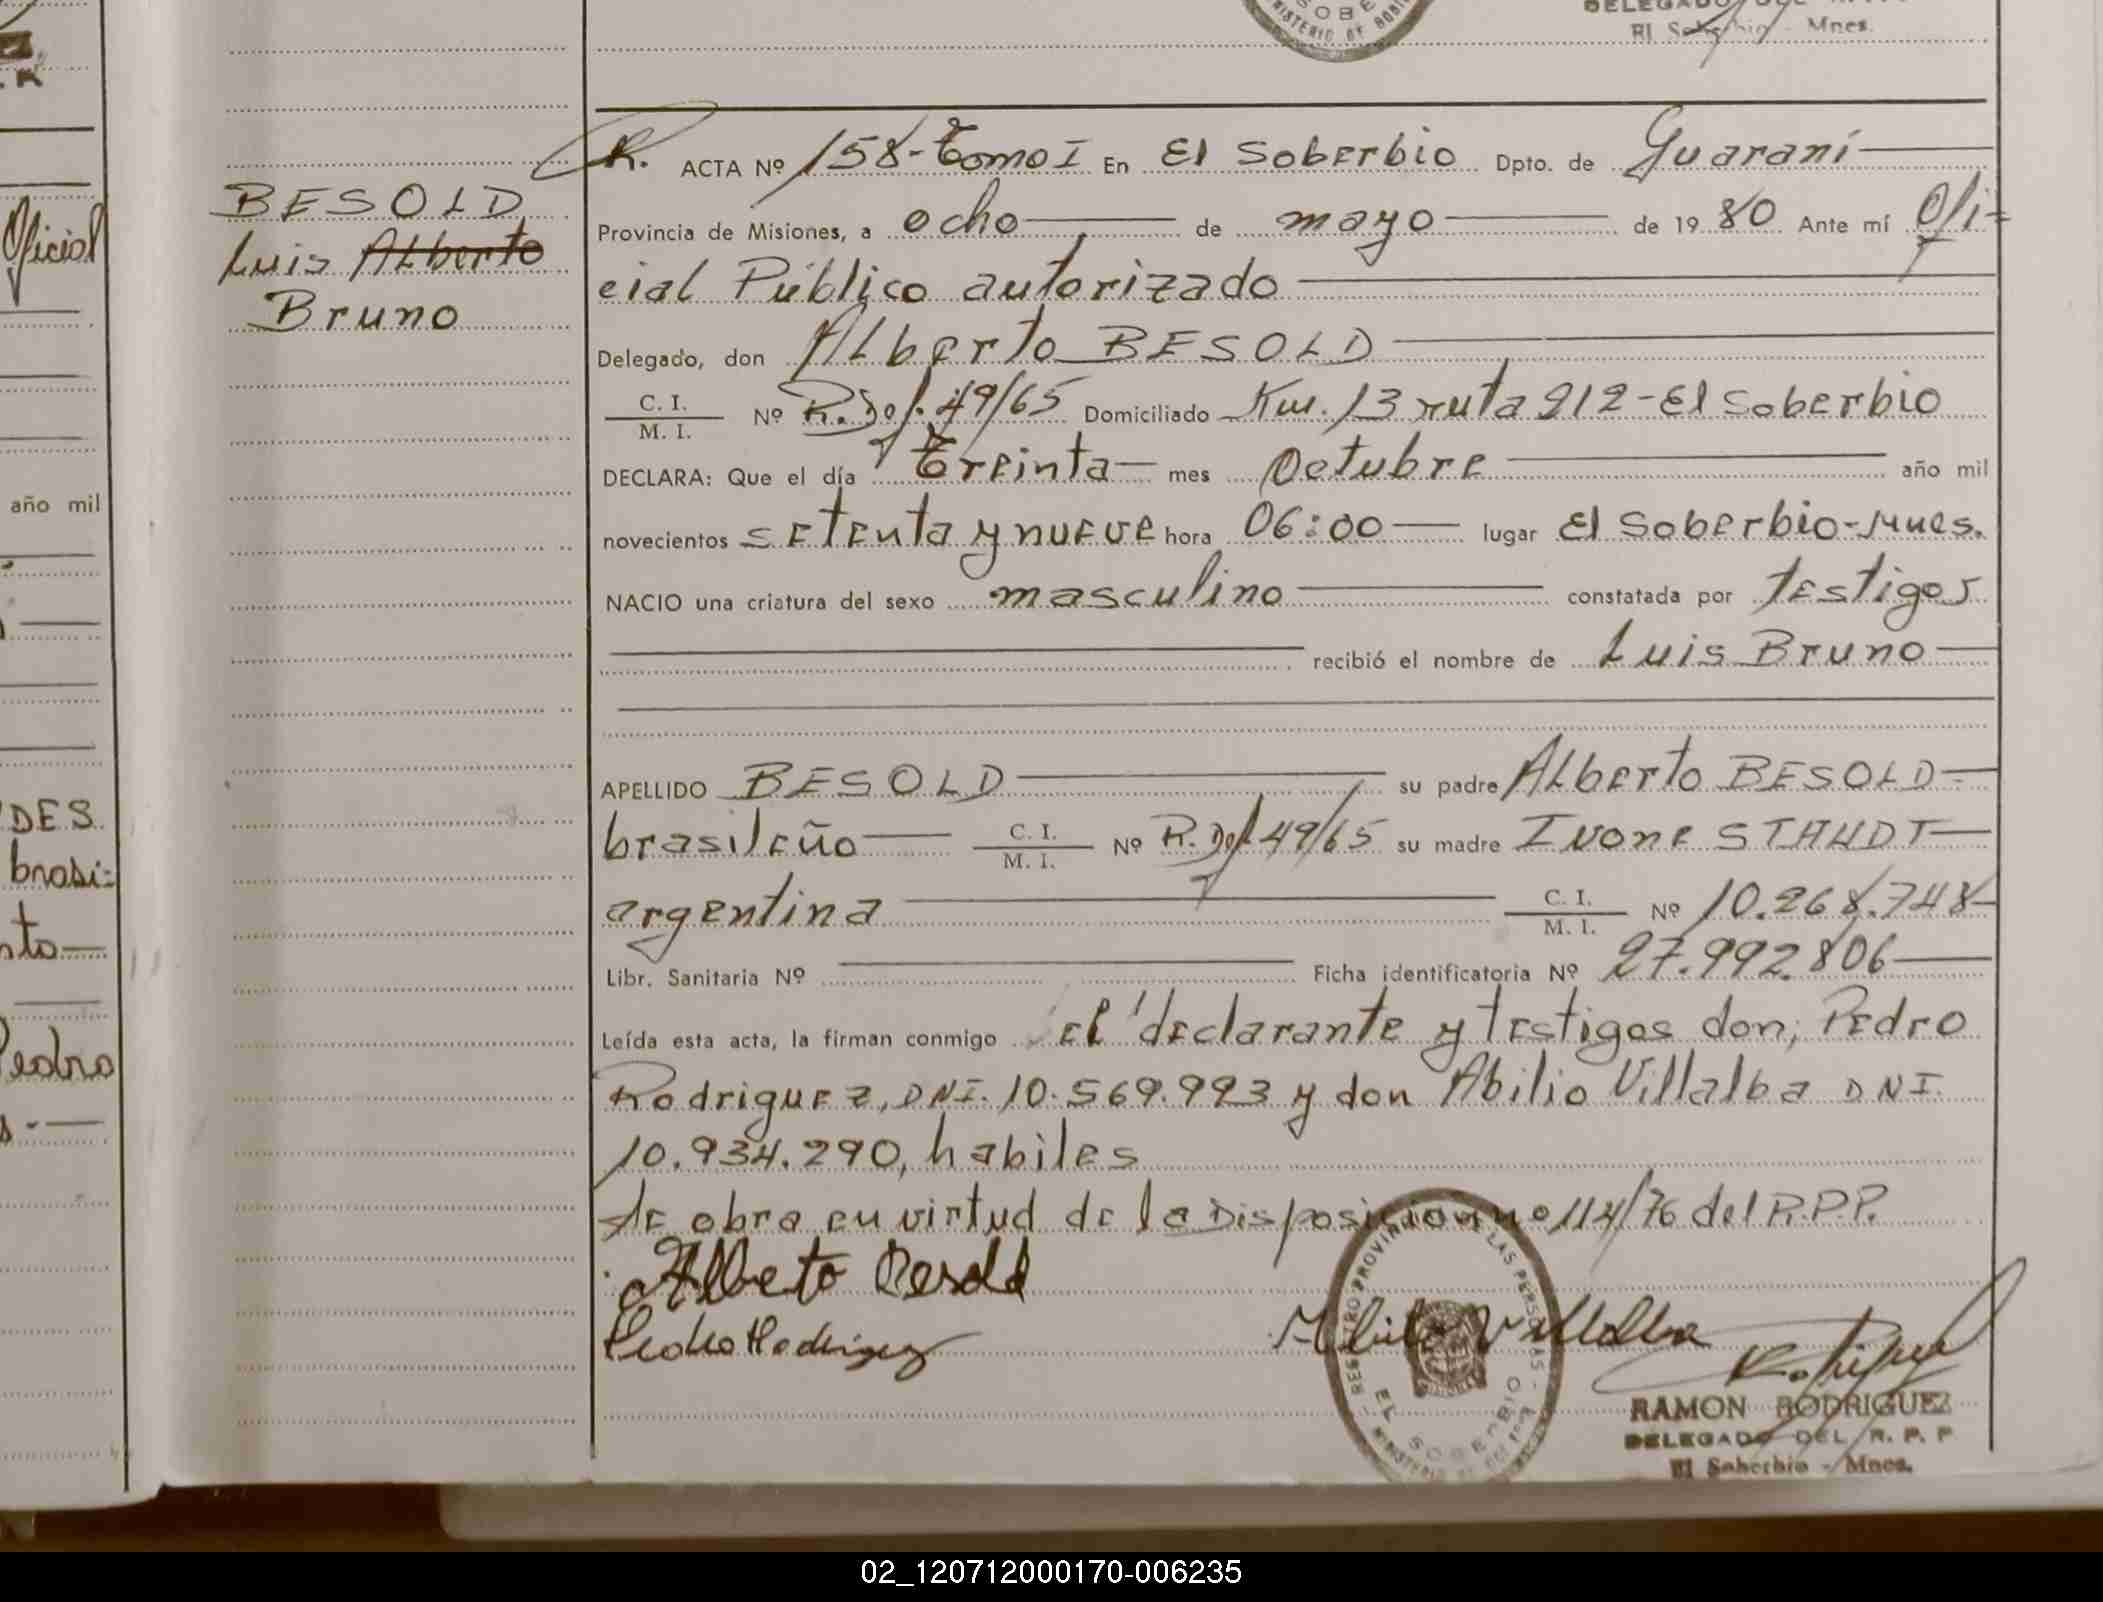 DELEGADO DEL R.P.P.
El Soberbio - Mnes.
Oficial
año mil
DES
brasi-
nto
Pedro
BESOLD
Luis Alberto
Bruno
R. ACTA Nº 158-Tomo I En El Soberbio Dpto. de Guaraní
Provincia de Misiones, a ocho de mayo de 1980 Ante mí Ofi-
cial Público autorizado
Delegado, don Alberto BESOLD
C. I. / M. I. Nº R.Def. 49/65 Domiciliado Km. 13 ruta 212-El Soberbio
DECLARA: Que el día Treinta mes Octubre año mil
novecientos setenta y nueve hora 06:00 lugar El Soberbio-Mnes.
NACIO una criatura del sexo masculino constatada por testigos
recibió el nombre de Luis Bruno
APELLIDO BESOLD su padre Alberto BESOLD
brasileño C. I. / M. I. Nº R.Def 49/65 su madre Ivone STAUDT
argentina C. I. / M. I. Nº 10.268.748
Libr. Sanitaria Nº Ficha identificatoria Nº 27.992.806
Leída esta acta, la firman conmigo el declarante y testigos don, Pedro
Rodriguez, DNI. 10.569.993 y don Abilio Villalba DNI.
10.934.290, habiles
Se obra en virtud de la Disposicion nº 114/76 del R.P.P.
Alberto Besold
Pedro Rodriguez Abilio Villalba
REGISTRO PROVINCIAL DE LAS PERSONAS
EL SOBERBIO
MINISTERIO DE GOBIERNO
RAMON RODRIGUEZ
DELEGADO DEL R. P. P
El Soberbio - Mnes.
02_120712000170-006235